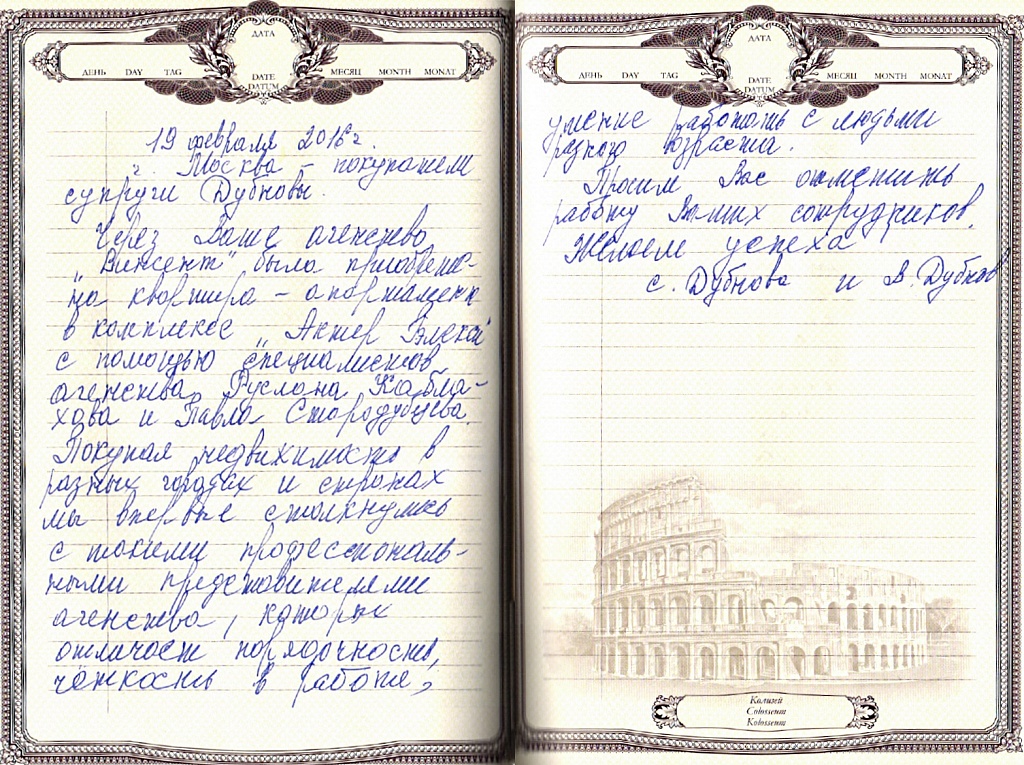 ДАТА
ДЕНЬ DAY TAG
МЕСЯЦ MONTH MONAT
DATE
DATUM
19 февраля 2016 г.
г. Москва – покупатели
супруги Дубновы.
Через Ваше агенство
„Винсент" была приобрете-
на квартира – апортамент
в комплексе „Актер Гэлекси"
с помощью специалистов
агенства Руслана Кабла-
хова и Павла Стародубцева.
Покупая недвижимость в
разных городах и странах
мы впервые столкнулись
с такими профессиональ-
ными представителями
агенства, которых
отличает порядочность,
чёткость в работе,
ДАТА
ДЕНЬ DAY TAG
МЕСЯЦ MONTH MONAT
DATE
DATUM
умение работать с людьми
разного возраста.
Просим Вас отметить
работу Ваших сотрудников.
Желаем успеха
С. Дубнова и В. Дубнов
Колизей
Colosseum
Kolosseum